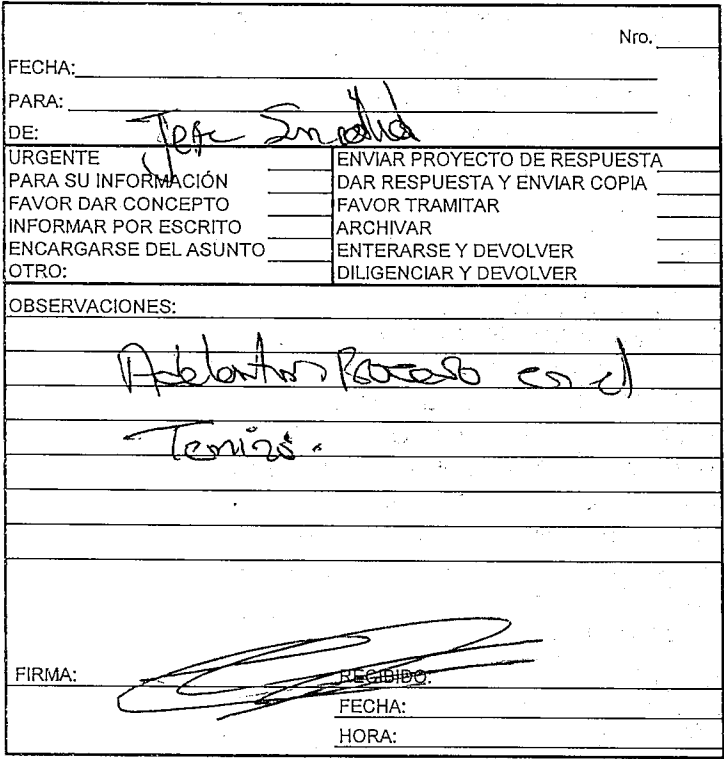 Nro.
FECHA:
PARA:
DE: Jefe
URGENTE
PARA SU INFORMACIÓN
FAVOR DAR CONCEPTO
INFORMAR POR ESCRITO
ENCARGARSE DEL ASUNTO
OTRO:
ENVIAR PROYECTO DE RESPUESTA
DAR RESPUESTA Y ENVIAR COPIA
FAVOR TRAMITAR
ARCHIVAR
ENTERARSE Y DEVOLVER
DILIGENCIAR Y DEVOLVER
OBSERVACIONES:
Proceso en el
FIRMA:
RECIBIDO:
FECHA:
HORA: